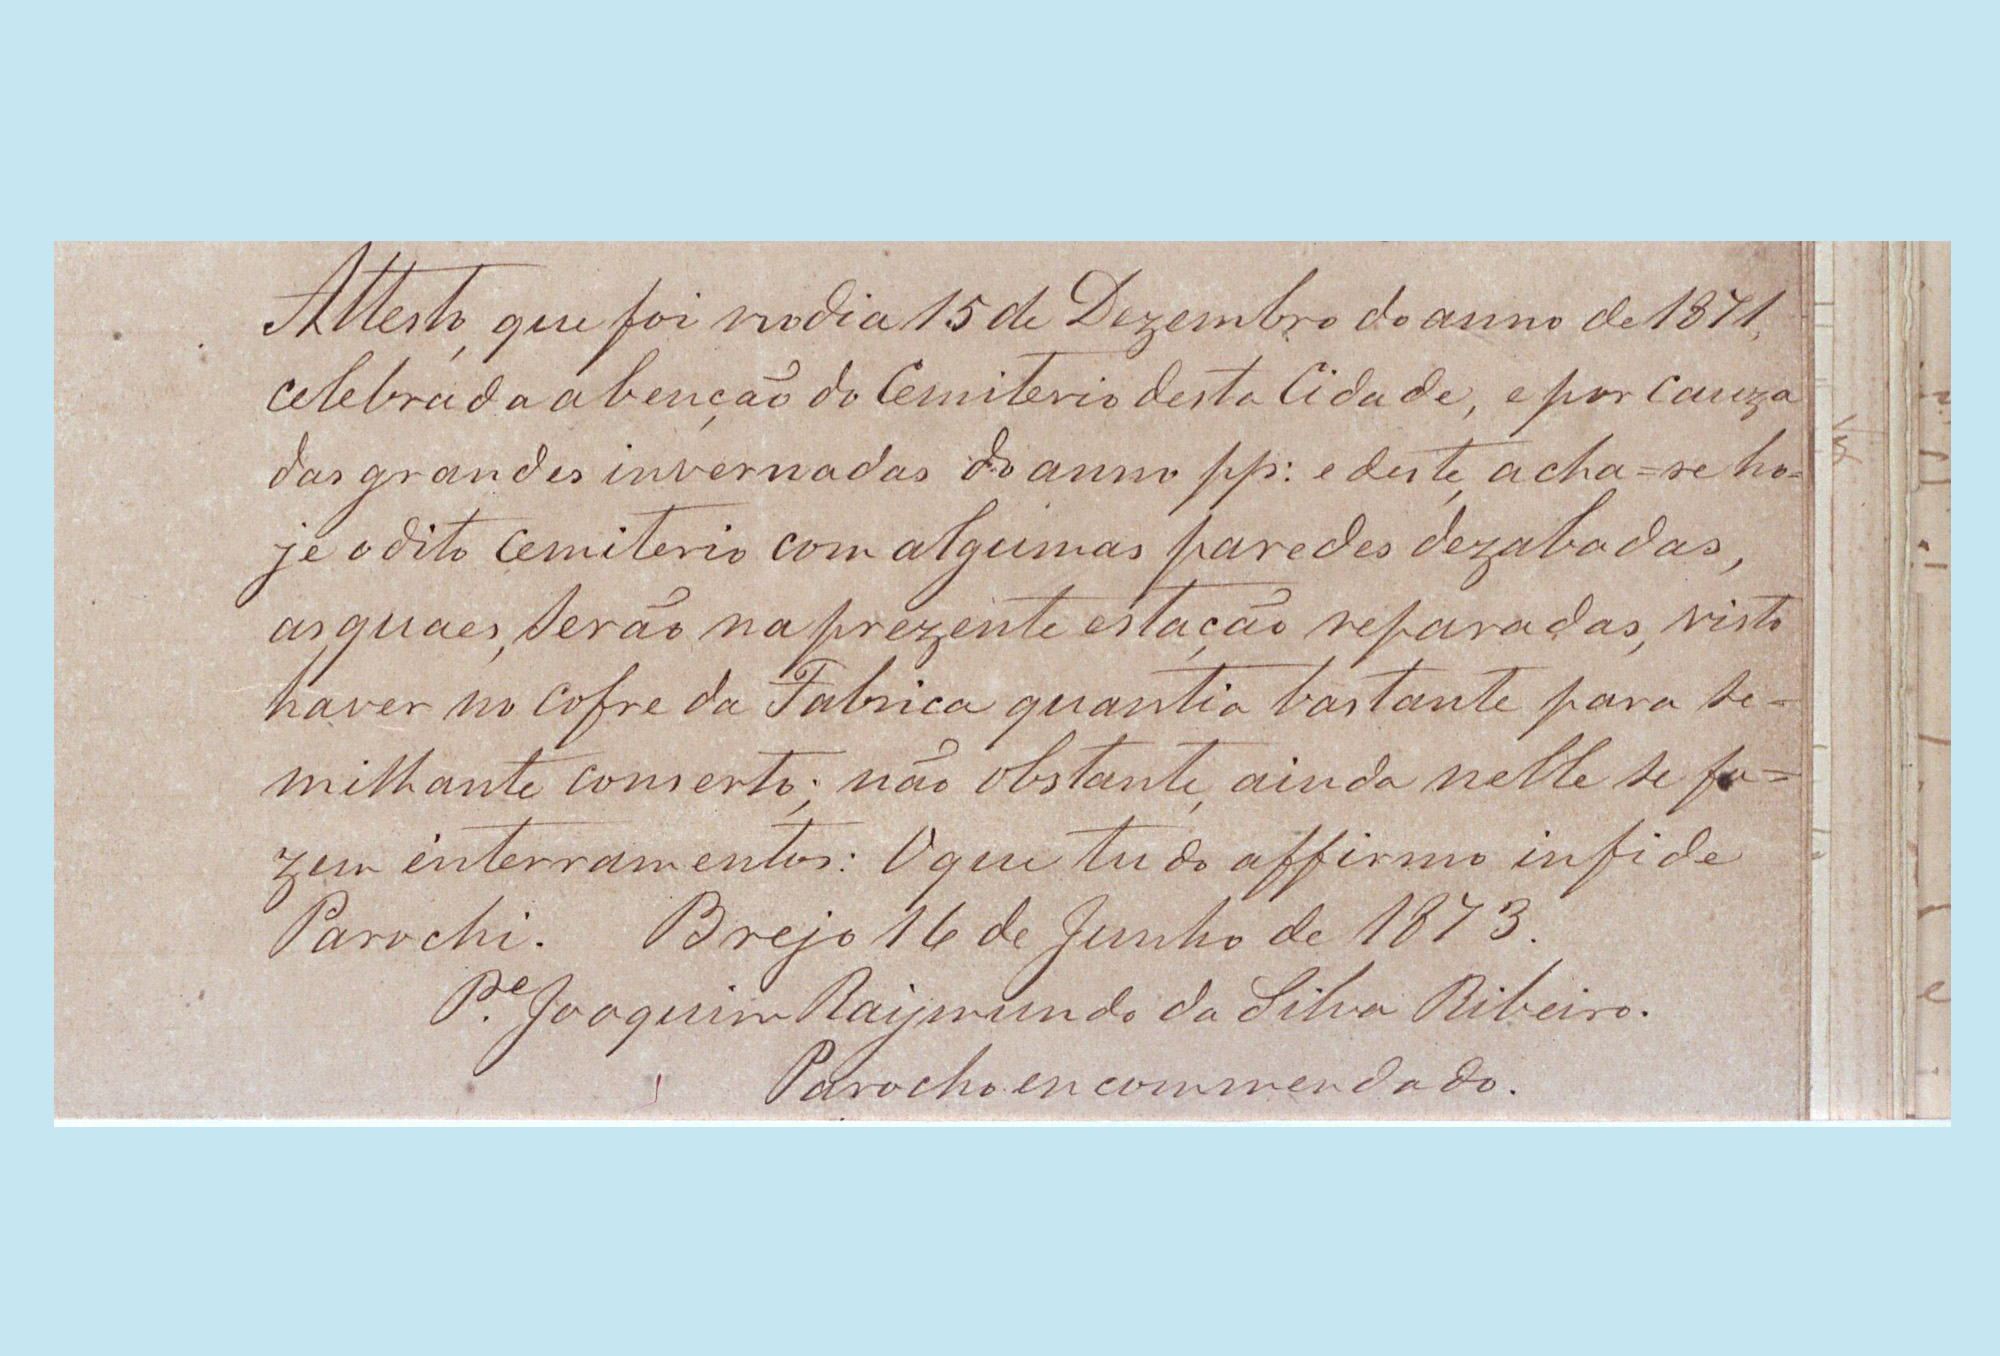 Attesto, que foi no dia 15 de Dezembro do anno de 1871,
celebrada a benção do Cemiterio desta Cidade, e por cauza
das grandes invernadas do anno pp: e deste, acha=se ho=
je o dito Cemiterio com algumas paredes dezabadas,
as quaes, serão na prezente estação reparadas, visto
haver no cofre da Fabrica quantia bastante para se=
milhante conserto; não obstante, ainda nelle se fa=
zem enterramentos: O que tudo affirmo in fide
Parochi. Brejo 16 de Junho de 1873.
Pe. Joaquim Raijmundo da Silva Ribeiro.
Parocho encommendado.